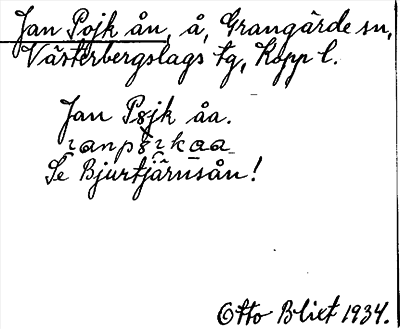 Jan Pojk ån, å, Grangärde sn,
Västerbergslags tg, Kopp l.
Jan Pojk åa.
Se Bjurtjärnsån!
Otto Blixt 1934.